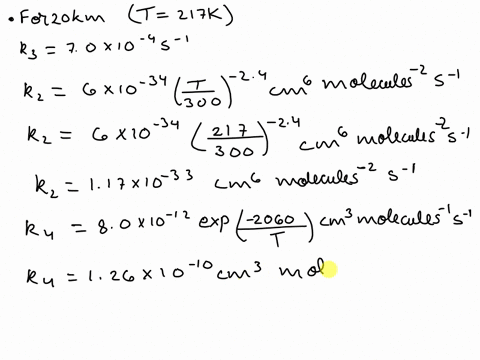 • For 20km (T = 217K)
k₃ = 7.0 × 10⁻⁴ s⁻¹
k₂ = 6 × 10⁻³⁴ (T/300)⁻²·⁴ cm⁶ molecules⁻² s⁻¹
k₂ = 6 × 10⁻³⁴ (217/300)⁻²·⁴ cm⁶ molecules⁻² s⁻¹
k₂ = 1.17 × 10⁻³³ cm⁶ molecules⁻² s⁻¹
k₄ = 8.0 × 10⁻¹² exp(-2060/T) cm³ molecules⁻¹ s⁻¹
k₄ = 1.26 × 10⁻¹⁰ cm³ mol